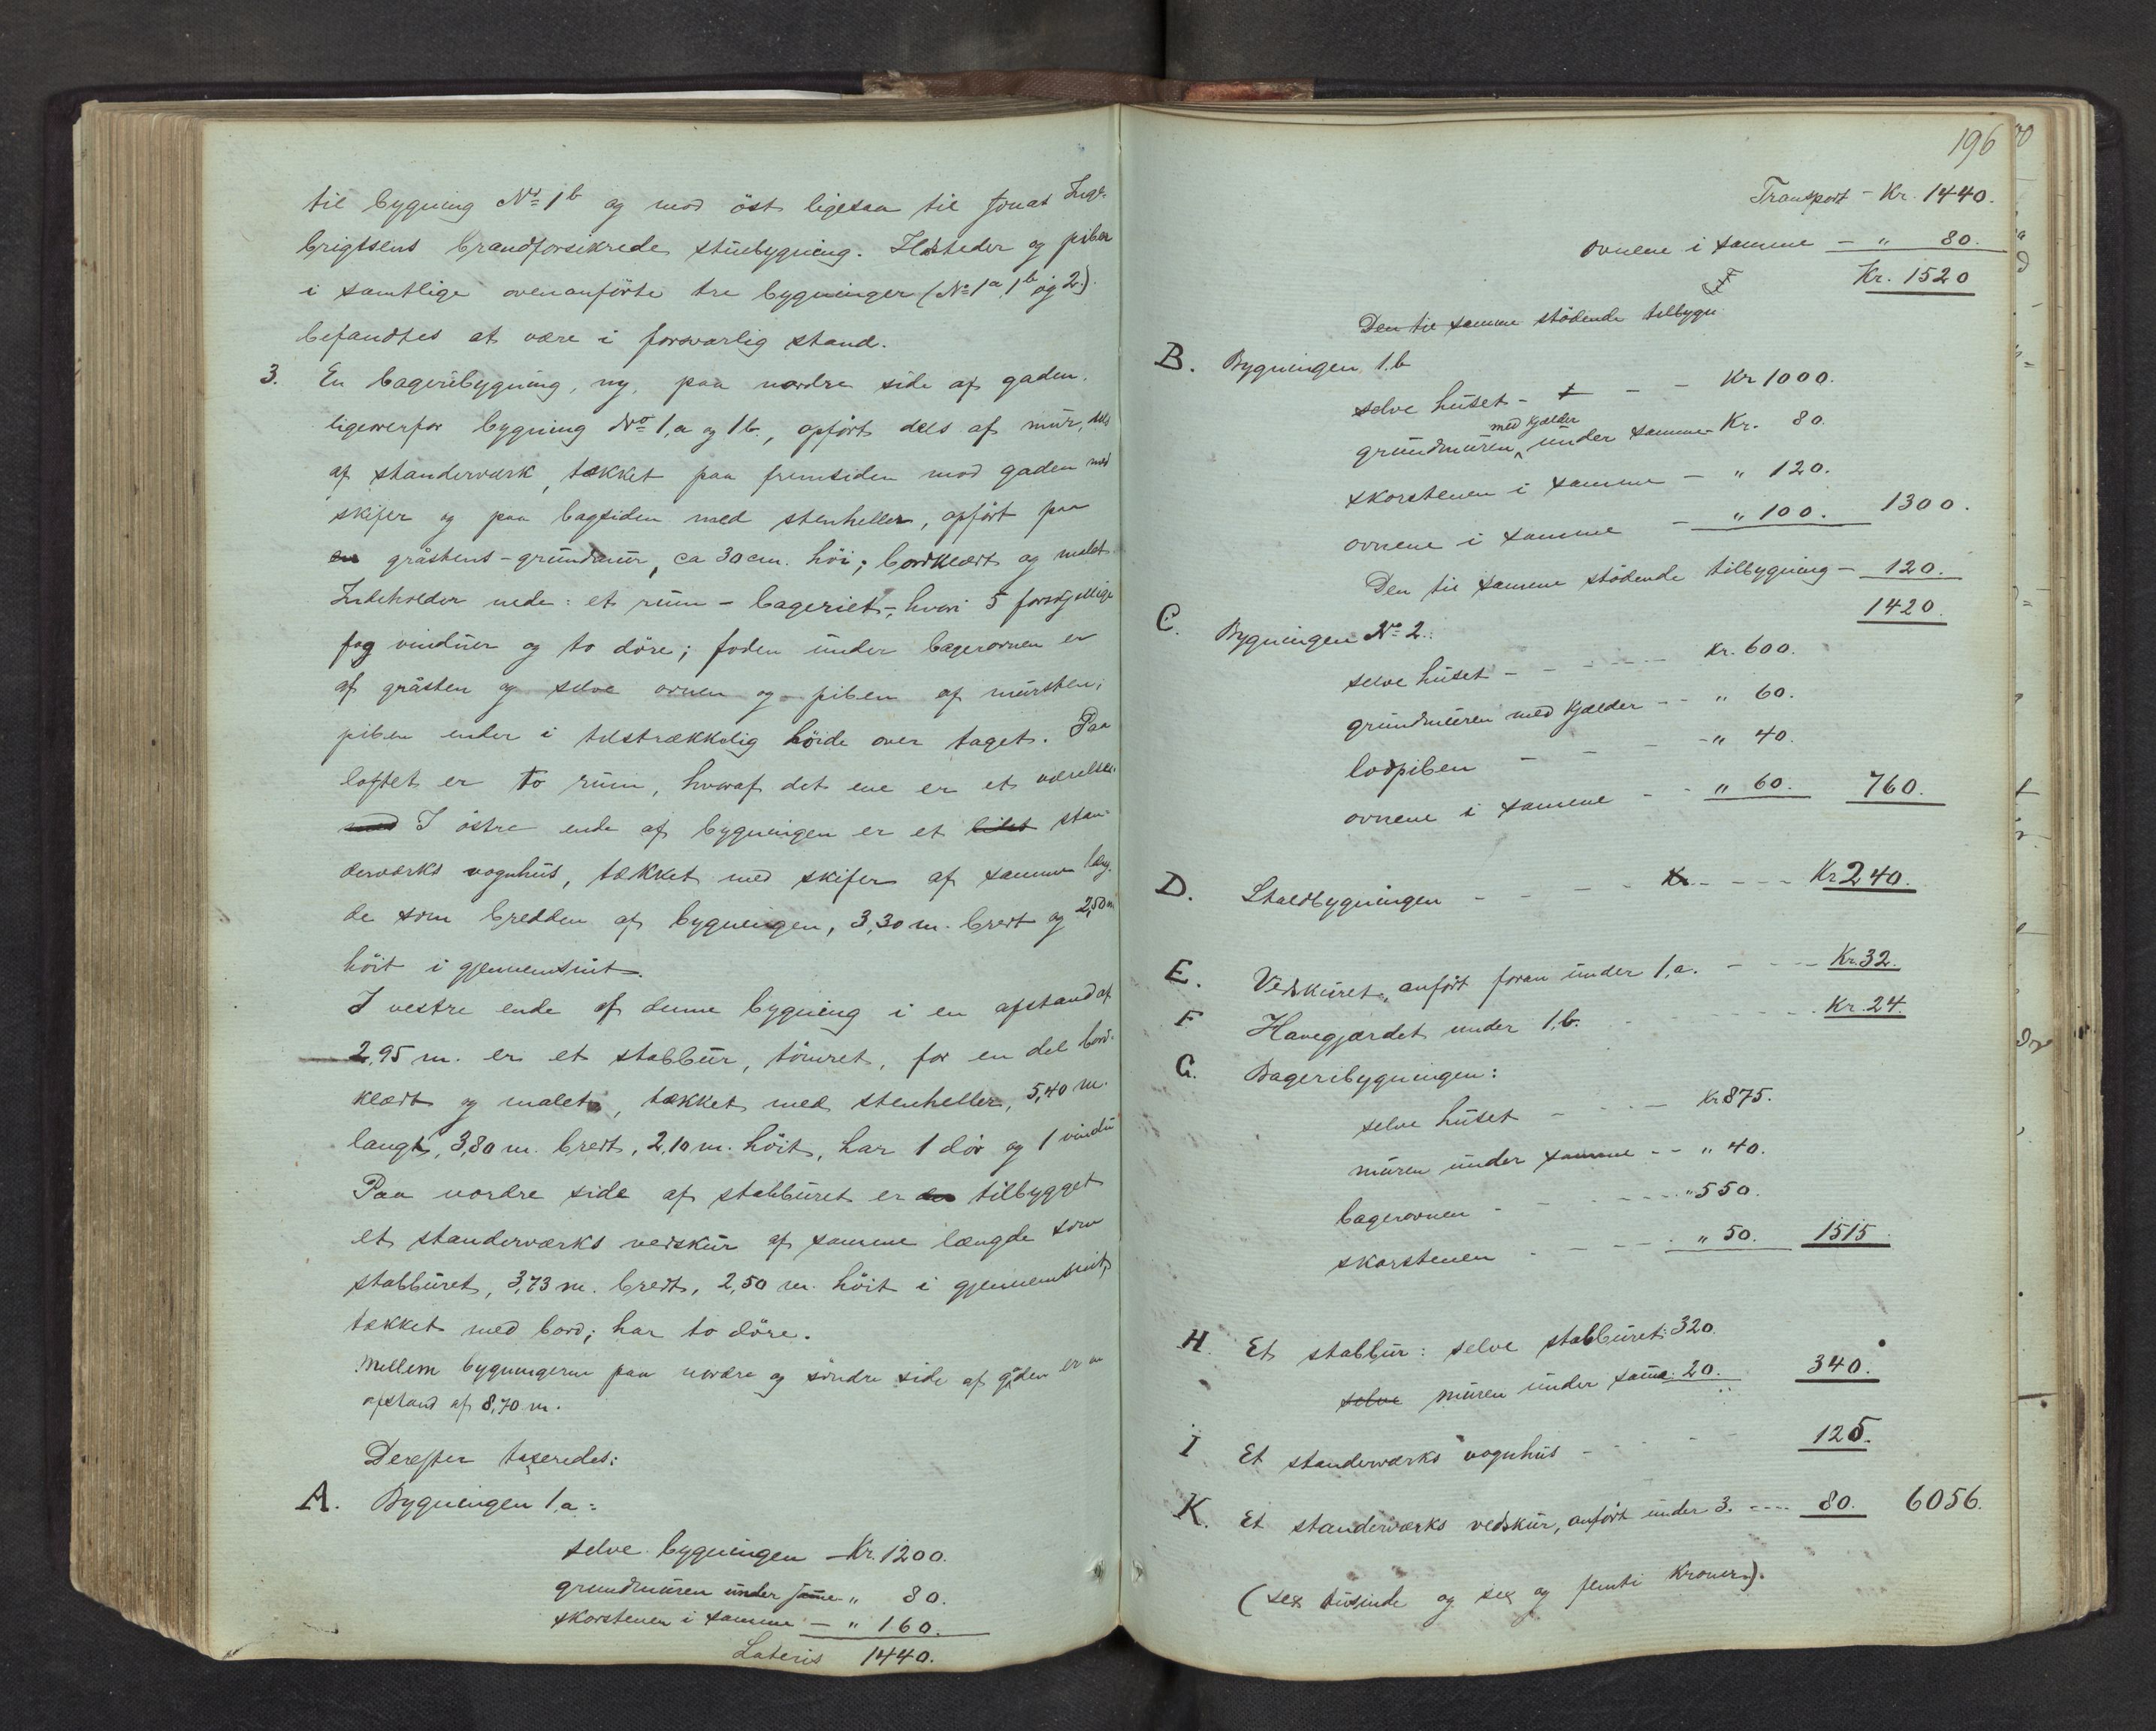 til bygning No 1b og mod öst ligesaa til Jonas Inge-
brigtsens brandforsikrede stuebygning. Ildsteder og piber
i samtlige ovenanförte tre bygninger (No 1a 1b og 2.)
befandtes at være i forsvarlig stand.
3. En bageribygning, ny, paa nordre side af gaden,
ligeoverfor bygning No 1,a og 1b., opfört dels af mur, dels
af standerværk, tækket paa fremsiden mod gaden med
skifer og paa bagsiden med stenheller, opfört paa
en gråstens-grundmur, ca 30 cm. höi; bordklædt og malet.
Indeholder nede: et rum - bageriet -, hvori 5 forskjellige
fag vinduer og to döre; foden under bagerovnen er
af gråsten og selve ovnen og piben af mursten;
piben ender i tilstrækkelig höide over taget. Paa
loftet er to rum, hvoraf det ene er et værelse.
med I östre ende af bygningen er et lidet stan-
derværks vognhus, tækket med skifer af samme læng-
de som bredden af bygningen, 3,30 m. bredt og 2,50 m
höit i gjennemsnit.
I vestre ende af denne bygning i en afstand af
2,95 m. er et stabbur, tömret, for en del bord-
klædt og malet, tækket med stenheller, 5,40 m.
langt, 3,80 m. bredt, 2,10 m. höit, har 1 dör og 1 vindu
Paa nordre side af stabburet er en tilbygget
et standerværks vedskur af samme længde som
stabburet, 3,73 m. bredt, 2,50 m. höit i gjennemsnit,
tækket med bord; har to döre.
Mellem bygningerne paa nordre og söndre side af gaden er en
afstand af 8,70 m.
Derefter taxeredes:
A. Bygningen 1,a:
selve bygningen - Kr. 1200.
grundmuren under samme " 80.
skorstenen i samme - " 160.
Lateris 1440.
196
Transport - Kr. 1440.
ovnene i samme - " 80.
Kr. 1520
Den til samme stödende tilbygn
B. Bygningen 1.b
selve huset - - - Kr 1000.
med kjælder
grundmuren under samme - Kr. 80.
skorstenen i samme - " 120.
ovnene i samme - " 100. 1300.
Den til samme stödende tilbygning - 120.
1420.
C. Bygningen No 2.:
selve huset - - - - Kr. 600.
grundmuren med kjælder - - " 60.
lodpiben - - - " 40.
ovnene i samme - - " 60. 760.
D. Staldbygningen - - - Kr - - - Kr 240.
E. Vedskuret, anfört foran under 1,a. - - - Kr. 32.
F Havegjærdet under 1,b. - - - Kr. 24.
G. Bageribygningen:
selve huset - - - Kr 875.
muren under samme - - " 40.
bagerovnen - - - " 550.
skorstenen - - - " 50. 1515
H. Et stabbur: selve stabburet: 320.
selve muren under samme: 20. 340.
I Et standerværks vognhus - - - 125.
K. Et standerværks vedskur, anfört under 3. ---- 80. 6056.
(sex tusinde og sex og femti Kroner).